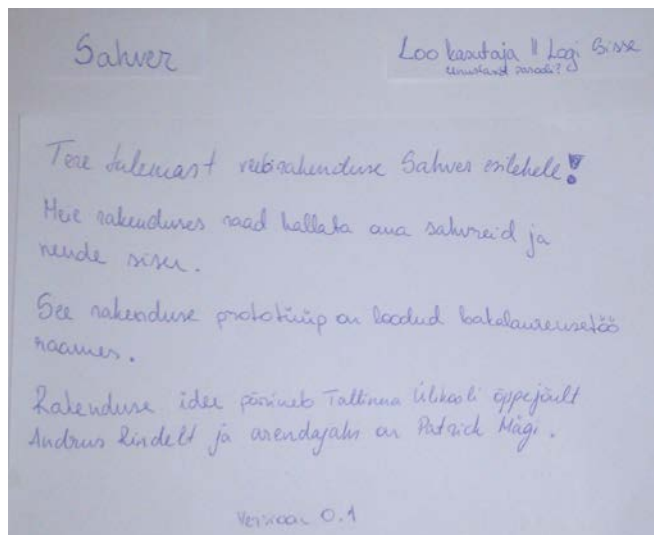 Sahver
Loo kasutaja || Logi sisse
Unustasid parooli?
Tere tulemast veebirakenduse Sahver esilehele!
Meie rakenduses saad hallata oma sahvreid ja
nende sisu.
See rakenduse prototüüp on loodud bakalaureusetöö
raames.
Rakenduse idee pärineb Tallinna Ülikooli õppejõult
Andrus Rindelt ja arendajaks on Patrick Mägi.
Versioon 0.1